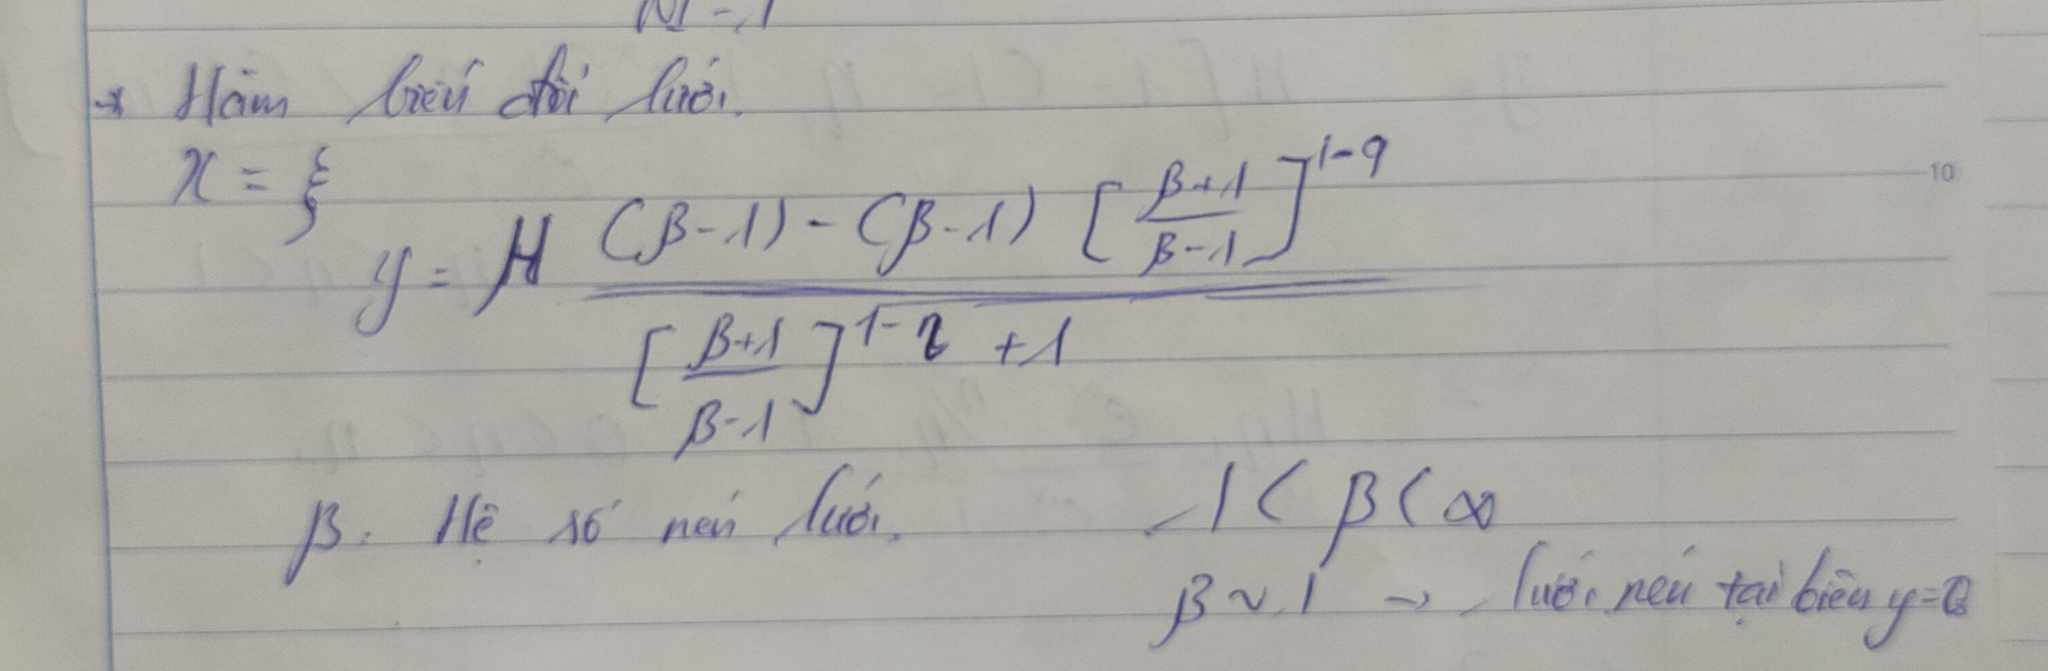 * Hàm biến đổi lưới.
x = ξ
y = H \frac{(β-1) - (β-1) [\frac{β+1}{β-1}]^{1-η}}{[\frac{β+1}{β-1}]^{1-η} + 1}
10
β: Hệ số nén lưới. 1 < β < ∞
β ~ 1 → lưới nén tại biên y=0